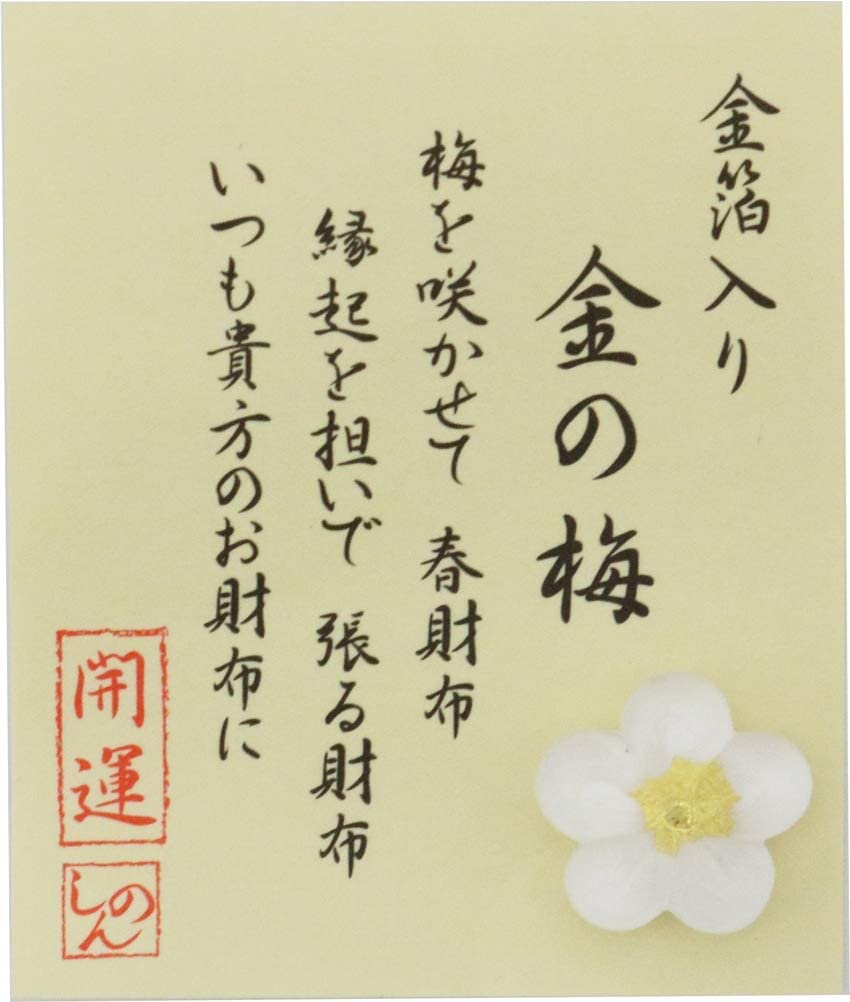 金箔入り
金の梅
梅を咲かせて 春財布
縁起を担いで 張る財布
いつも貴方のお財布に
開運
のしん